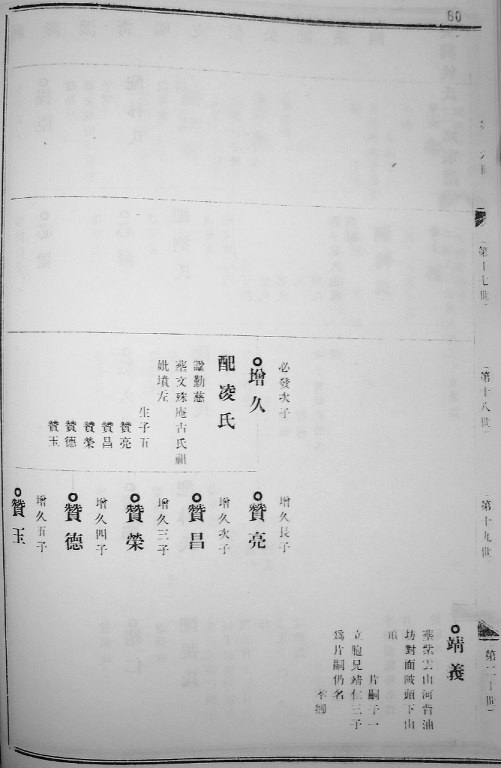 60
第十七世
第十八世
第十九世
第二十世
必發次子
增久
配凌氏
諡勤慈
葬文殊庵古氏祖
妣墳左
生子五
贊亮
贊昌
贊榮
贊德
贊玉
增久長子
贊亮
增久次子
贊昌
增久三子
贊榮
增久四子
贊德
增久五子
贊玉
靖義
葬業雲山河背油
坊對面陂頭下山
頂
片嗣子一
立胞兄靖仁三子
為片嗣仍名